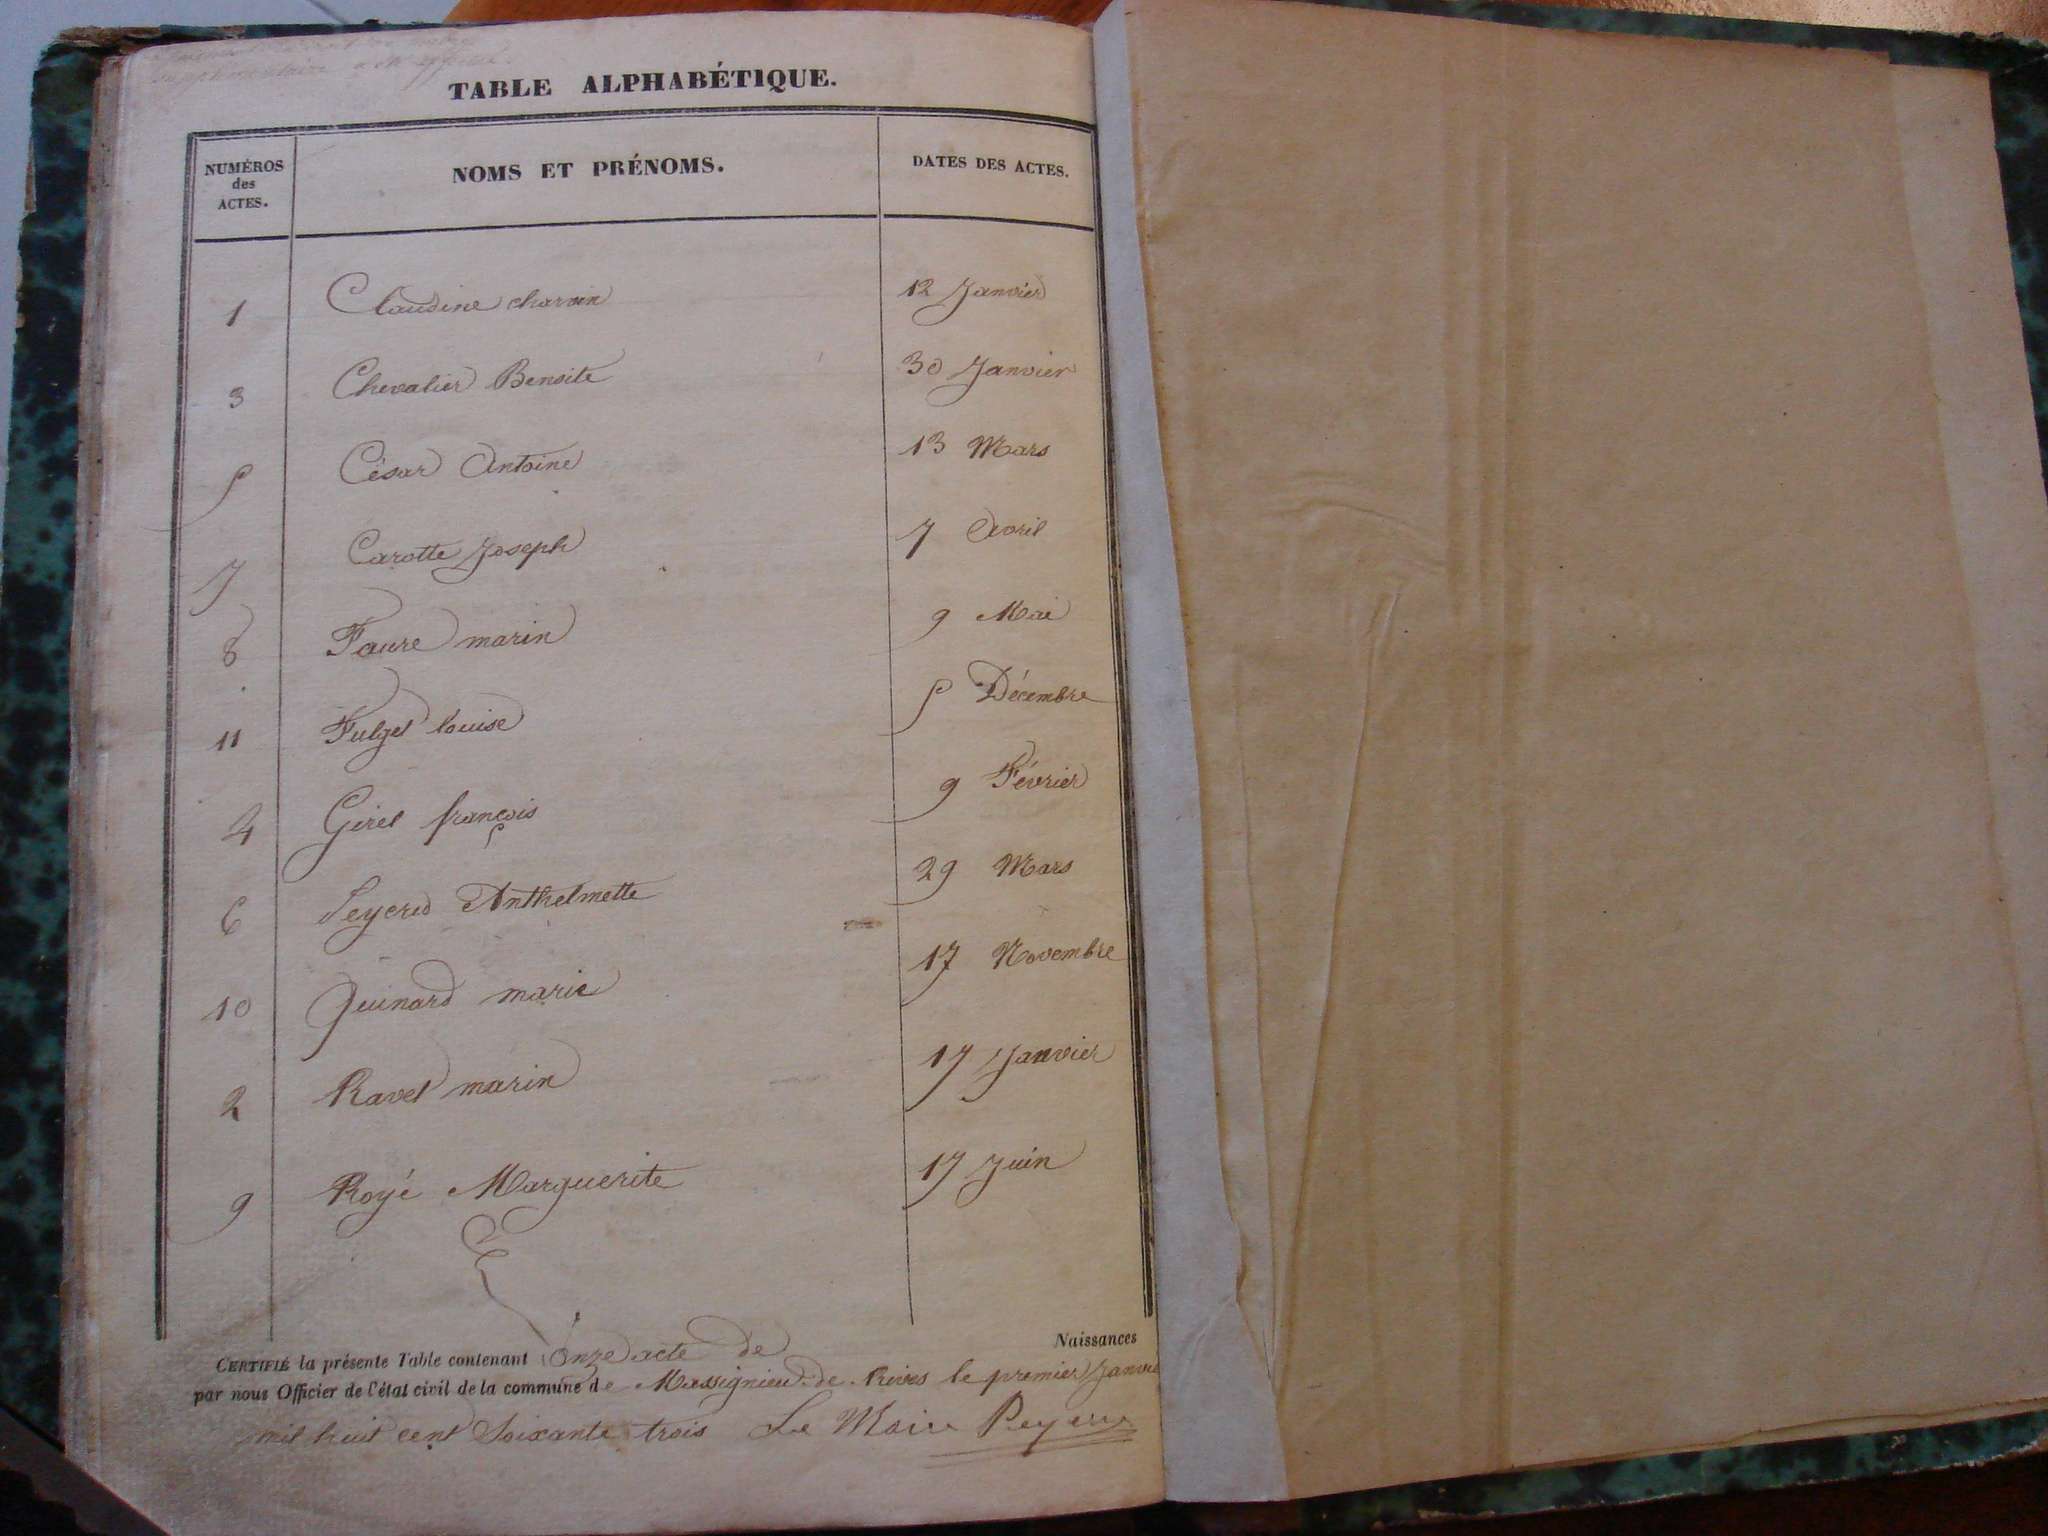 supplémentaire
TABLE ALPHABÉTIQUE.
NUMÉROS des ACTES. NOMS ET PRÉNOMS. DATES DES ACTES.
1 Claudine charvin 12 Janvier
3 Chevalier Benoite 30 Janvier
5 César Antoine 13 Mars
7 Carotte Joseph 7 Avril
8 Faure marin 9 Mai
11 Fulget louise 5 Décembre
4 Girel françois 9 Février
6 Peycru Anthelmette 29 Mars
10 Quinard marie 17 Novembre
2 Ravet marin 17 Janvier
9 Royé Marguerite 17 Juin
CERTIFIÉ la présente Table contenant Onze acte de Naissances
par nous Officier de l'état civil de la commune de Massignieu de Rives le premier Janvier
mil huit cent Soixante trois Le Maire